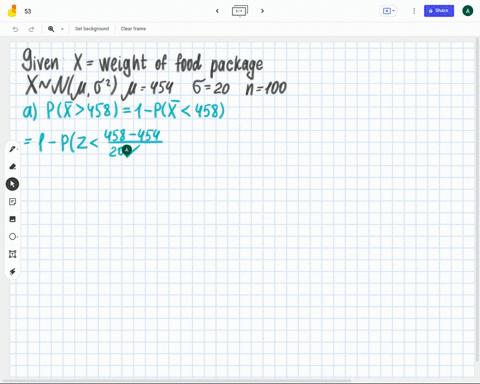 53
Set background
Clear frame
Share
A
Given X = weight of food package
X~N(μ, σ²) μ = 454 σ = 20 n = 100
a) P(X̄ > 458) = 1 - P(X̄ < 458)
= 1 - P(Z < 458 - 454
20
A